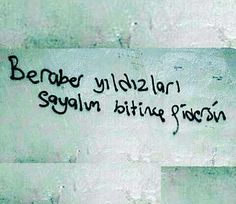 Beraber yıldızları
sayalım bitince gidersin